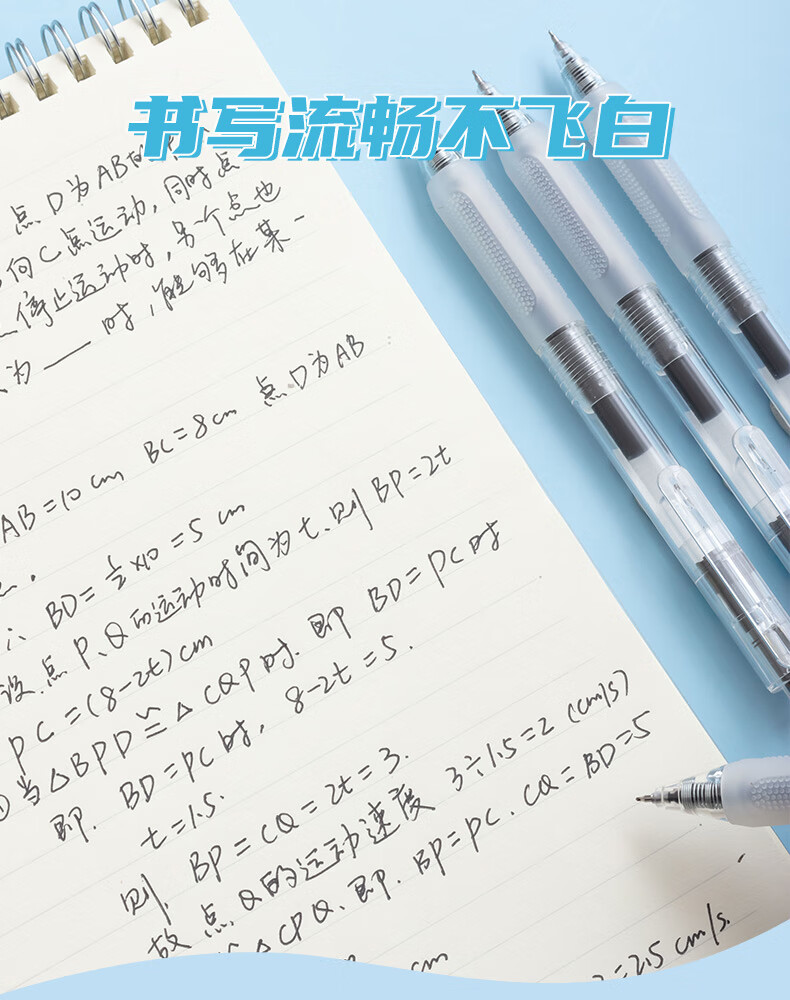 书写流畅不飞白
点D为AB的
向C点运动,同时点
停止运动时,另个点也
为——时,能够在某一
AB=10cm BC=8cm 点D为AB
∴ BD=½×10=5cm
设点P、Q的运动时间为t.则BP=2t
PC=(8-2t)cm
①当△BPD≌△CQP时.即BD=PC时
即.BD=PC时,8-2t=5.
t=1.5.
则.BP=CQ=2t=3.
故点Q的运动速度 3÷1.5=2 (cm/s)
≌△CPQ.即.BP=PC.CQ=BD=5
cm
=2.5cm/s.